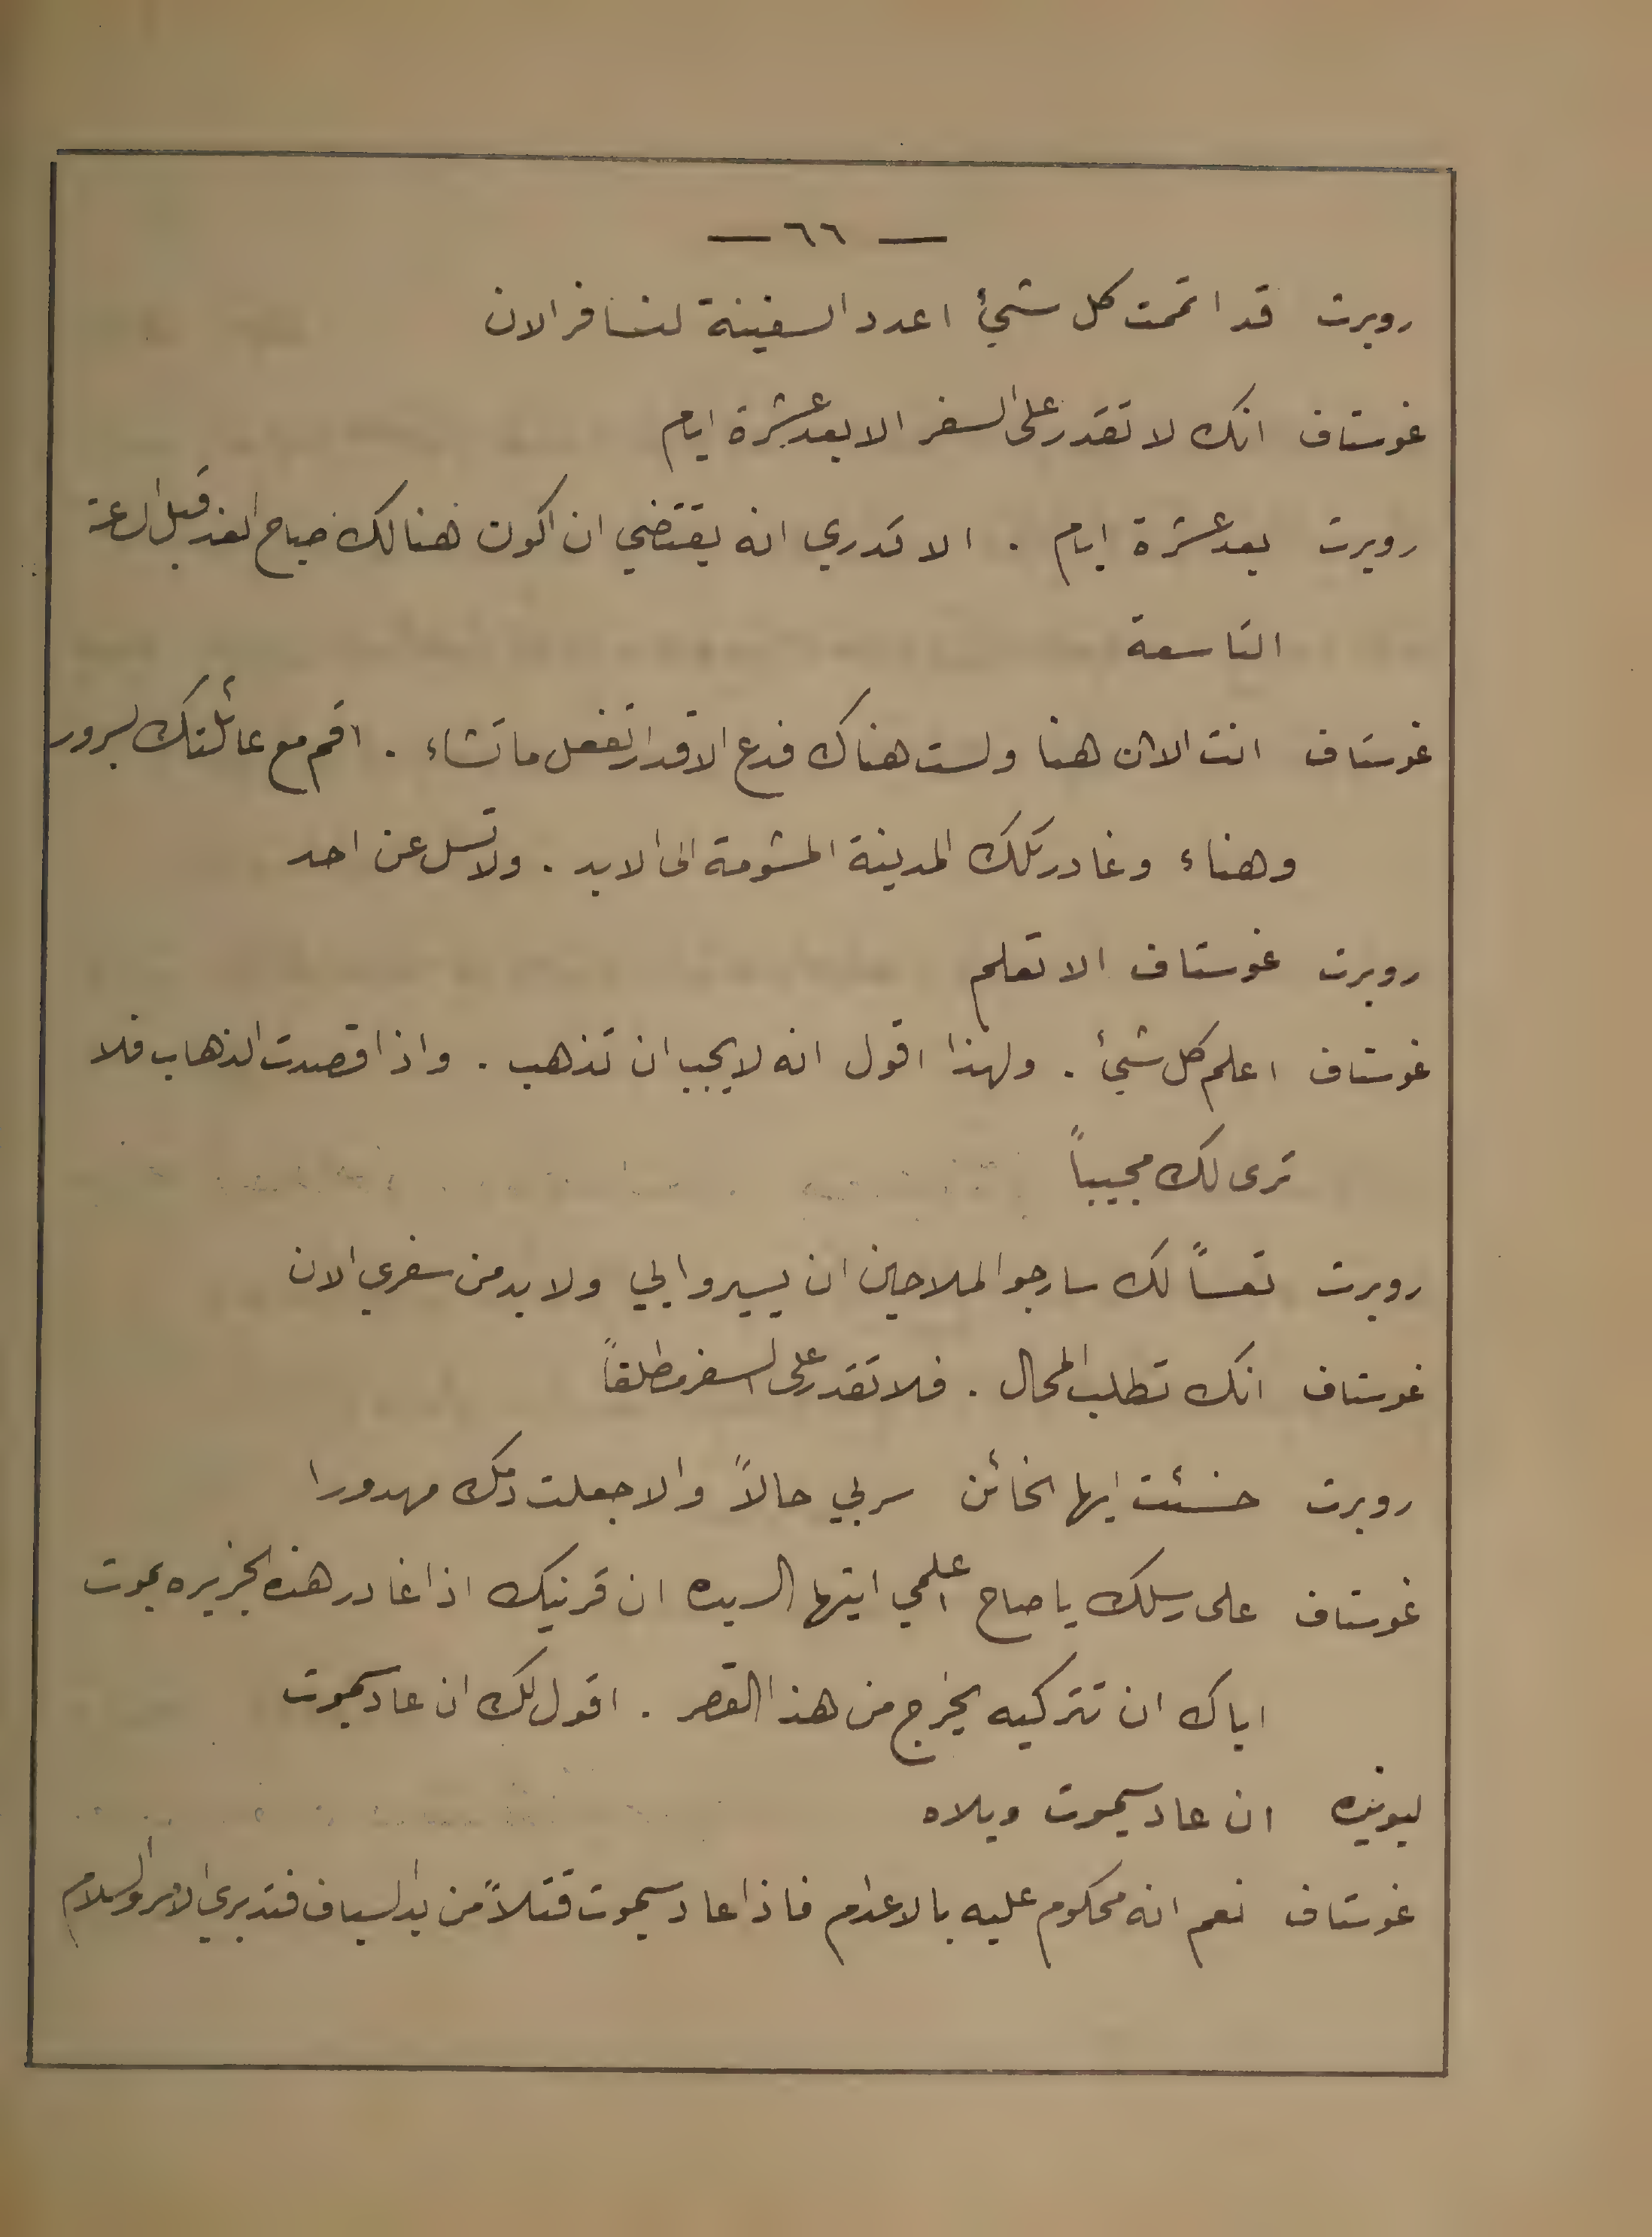 — ٦٦ —
روبرت قد اتممت كل شيئ اعدد السفينة لنسافر الان
غوستاف انك لا تقدر على السفر الا بعد عشرة ايام
روبرت بعد عشرة ايام . الا تدري انه يقتضي ان اكون هنالك صباح الغد قبل الساعة
التاسعة
غوستاف انت الان هنا ولست هناك فدع الاقدار تفعل ما تشاء . اقم مع عائلتك بسرور
وهناء وغادر تلك المدينة المشومة الى الابد . ولا تسل عن احد
روبرت غوستاف الا تعلم
غوستاف اعلم كل شيئ . ولهذا اقول انه لا يجب ان تذهب . واذا قصدت الذهاب فلا
ترى لك مجيباً
روبرت تعساً لك سارجو الملاحين ان يسيروا بي ولا بد من سفري الان
غوستاف انك تطلب المحال . فلا تقدر على السفر مطلقاً
روبرت خسئت ايها الخائن سر بي حالاً والا جعلت دمك مهدورا
غوستاف على رسلك يا صاح اعلمي ايتها السيده ان قرنيك اذا غادر هذه الجزيره يموت
اياك ان تتركيه يخرج من هذا القصر . اقول لك ان عاد سيموت
ليونيده ان عاد سيموت ويلاه
غوستاف نعم انه محكوم عليه بالاعدام فاذا عاد سيموت قتلاً من يد السياف فتدبري الامر والسلام